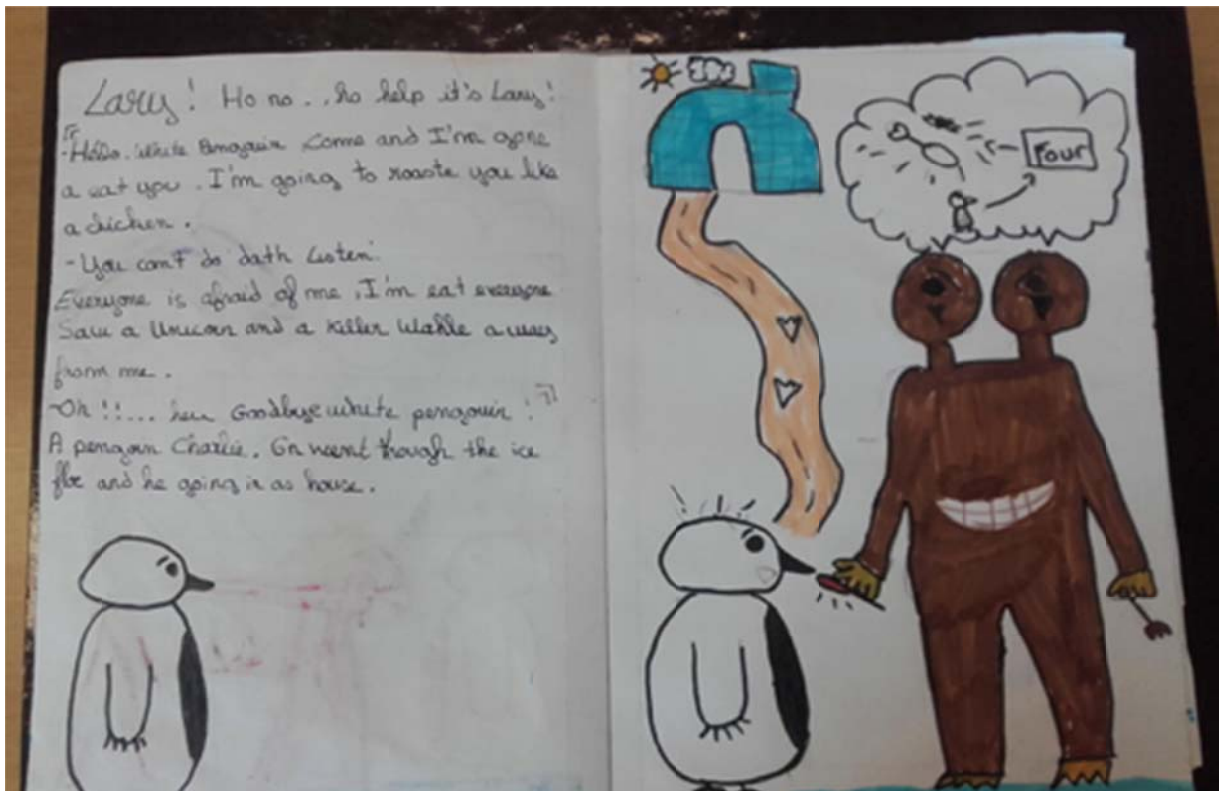 Lary! Ho no...ho help it's Lary!
-Hello. White Pengouin come and I'm gone
a eat you. I'm going to roaste you like
a chicken.
-You can't do dath Listen.
Everyone is afraid of me, I'm eat everyone
Saw a Unicorn and a Killer Wahle away
from me.
-Oh!!... heu Goodbye white pengouin!
A pengoin Charlie. Gn went though the ice
floe and he going in as house.
Four